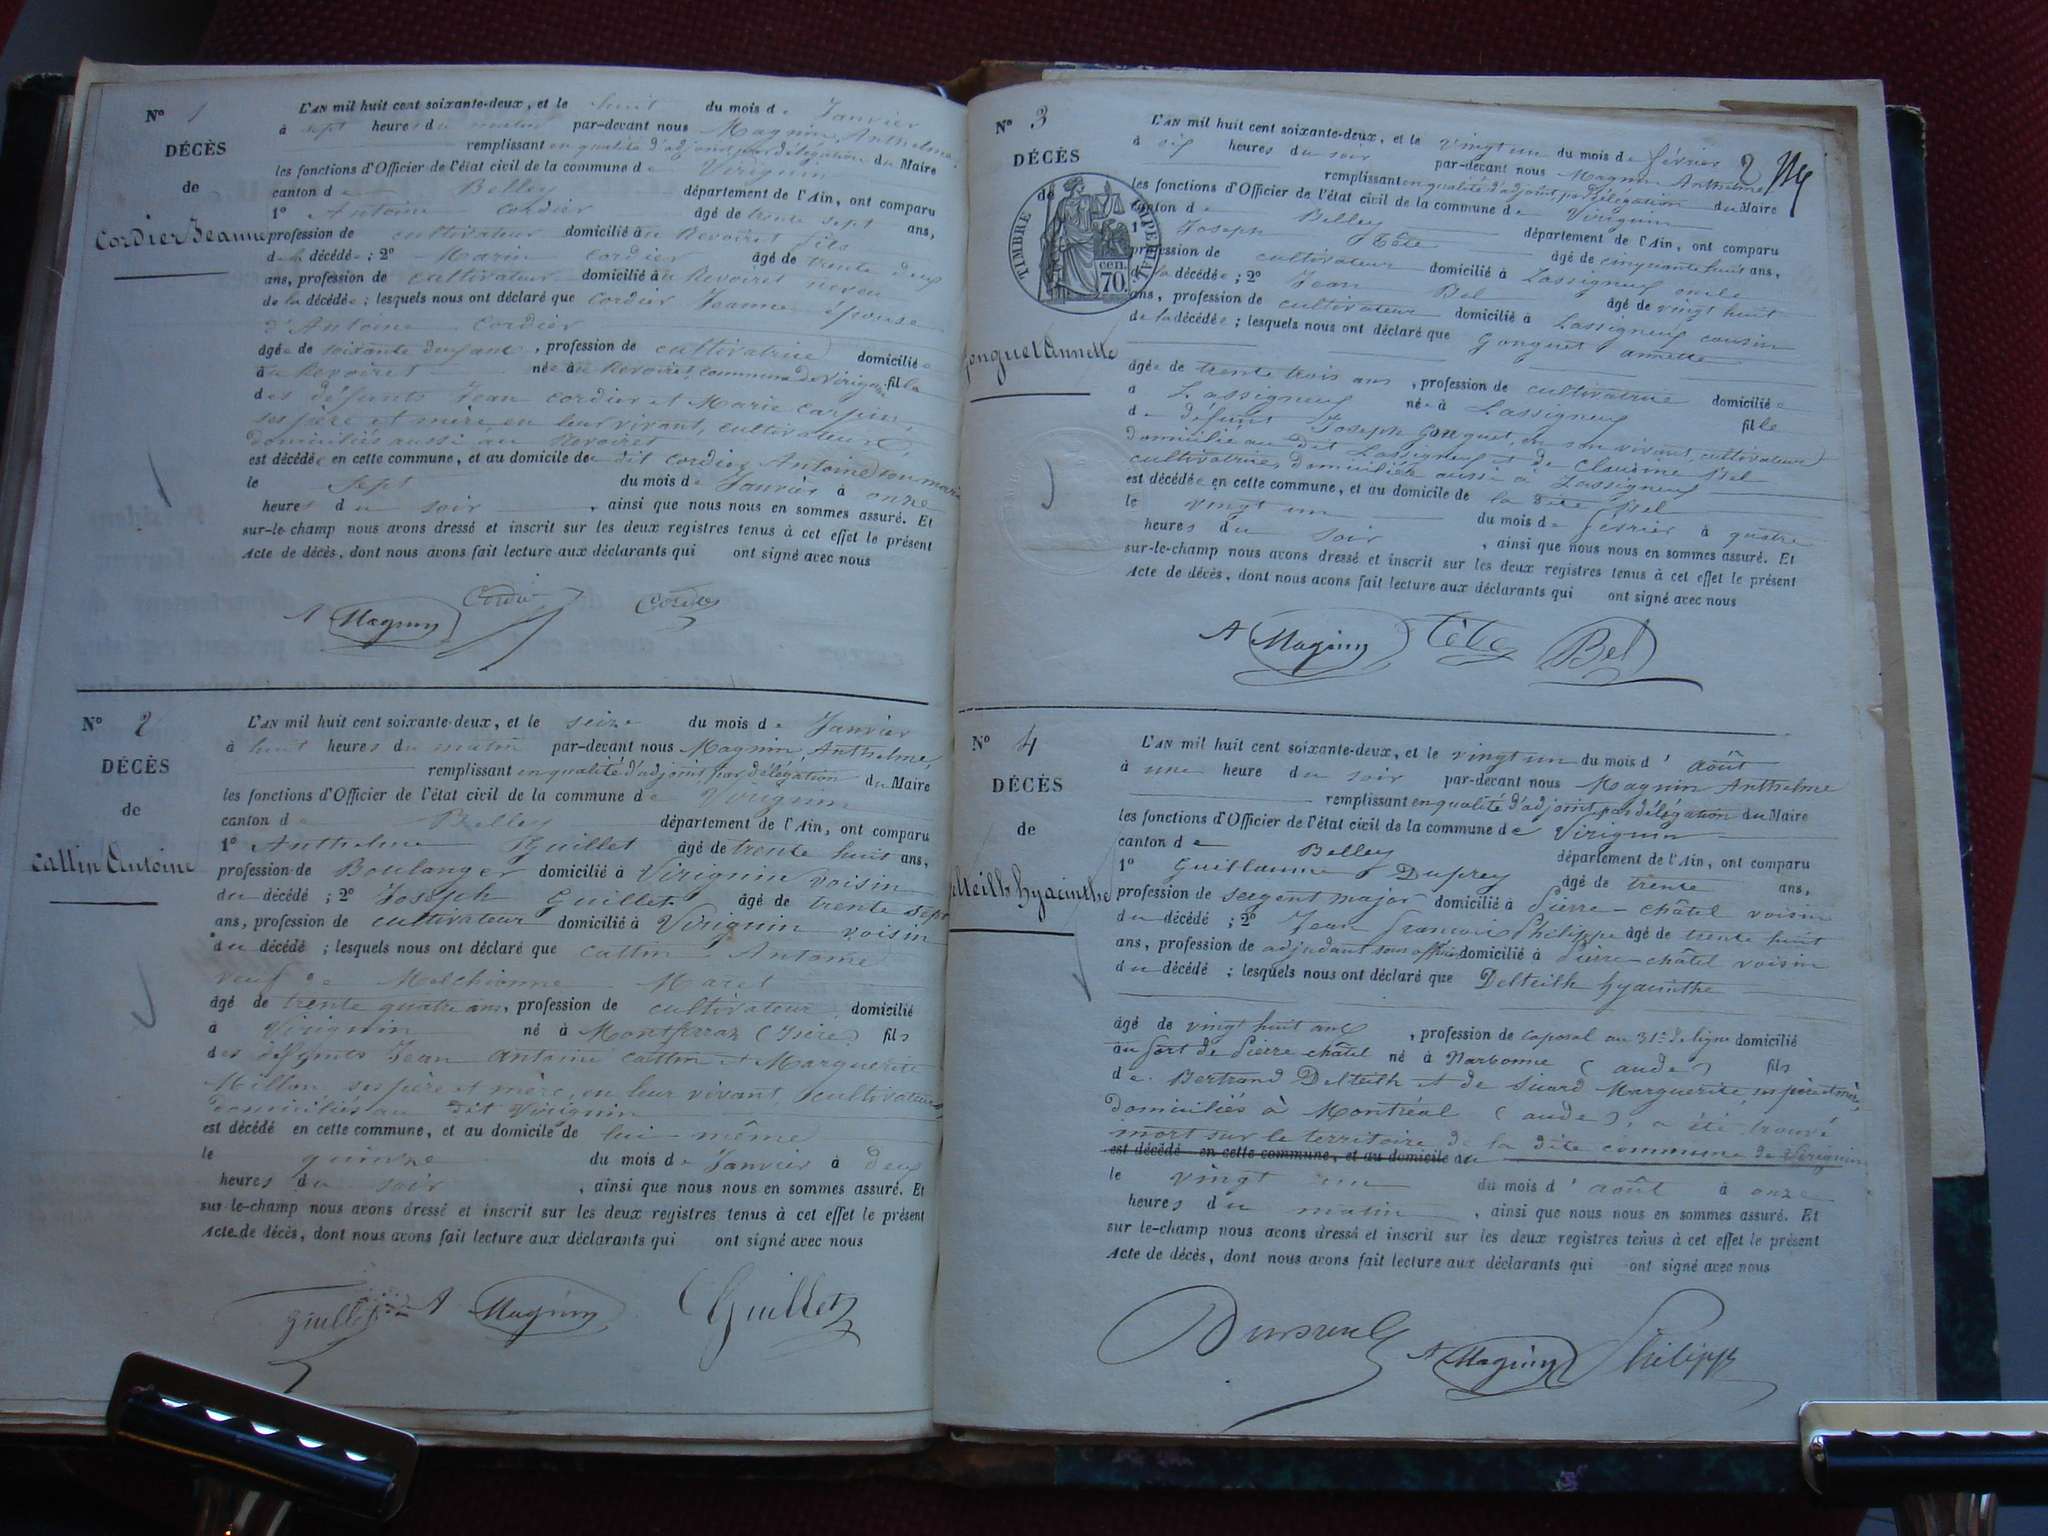 N° 1
DÉCÈS
de
Cordier Jeanne
L'AN mil huit cent soixante-deux, et le huit du mois de Janvier
à sept heures du matin par-devant nous Magnin, Anthelme
remplissant en qualité d'adjoint par délégation du Maire
les fonctions d'Officier de l'état civil de la commune de Virignin
canton de Belley département de l'Ain, ont comparu
1° Antoine Cordier âgé de trente sept ans,
profession de cultivateur domicilié au Revoiret fils
de la décédée ; 2° Marin Cordier âgé de trente deux
ans, profession de cultivateur domicilié au Revoiret neveu
de la décédée ; lesquels nous ont déclaré que Cordier Jeanne épouse
d'Antoine Cordier
âgée de soixante deux ans, profession de cultivatrice domiciliée
au Revoiret née au Revoiret, commune de Virignin fille
des défunts Jean Cordier et Marie Carpin,
ses père et mère, en leur vivant, cultivateurs,
domiciliés aussi au Revoiret
est décédée en cette commune, et au domicile de dit Cordier Antoine son mari
le sept du mois de Janvier à onze
heures du soir, ainsi que nous nous en sommes assuré. Et
sur-le-champ nous avons dressé et inscrit sur les deux registres tenus à cet effet le présent
Acte de décès, dont nous avons fait lecture aux déclarants qui ont signé avec nous
A Magnin Cordier Cordier
N° 2
DÉCÈS
de
Cattin Antoine
L'AN mil huit cent soixante-deux, et le seize du mois de Janvier
à huit heures du matin par-devant nous Magnin, Anthelme,
remplissant en qualité d'adjoint par délégation du Maire
les fonctions d'Officier de l'état civil de la commune de Virignin
canton de Belley département de l'Ain, ont comparu
1° Anthelme Guillet âgé de trente huit ans,
profession de Boulanger domicilié à Virignin voisin
du décédé ; 2° Joseph Guillet âgé de trente sept
ans, profession de cultivateur domicilié à Virignin voisin
du décédé ; lesquels nous ont déclaré que Cattin Antoine
veuf de Melchionne Maret
âgé de trente quatre ans, profession de cultivateur domicilié
à Virignin né à Montferraz (Isère) fils
des défunts Jean Antoine Cattin et Marguerite
Millon, ses père et mère, en leur vivant, cultivateurs
domiciliés au dit Virignin
est décédé en cette commune, et au domicile de lui-même
le quinze du mois de Janvier à deux
heures du soir, ainsi que nous nous en sommes assuré. Et
sur-le-champ nous avons dressé et inscrit sur les deux registres tenus à cet effet le présent
Acte de décès, dont nous avons fait lecture aux déclarants qui ont signé avec nous
Guillet A Magnin Guillet
N° 3
DÉCÈS
de
Gonguet Annette
TIMBRE IMPERIAL
cen.
70.
2
L'AN mil huit cent soixante-deux, et le vingt un du mois de février
à six heures du soir par-devant nous Magnin Anthelme
remplissant en qualité d'adjoint, par délégation du Maire
les fonctions d'Officier de l'état civil de la commune de Virignin
canton de Belley département de l'Ain, ont comparu
1° Joseph Tête âgé de cinquante huit ans,
profession de cultivateur domicilié à Lassigneux oncle
de la décédée ; 2° Jean Bel âgé de vingt huit
ans, profession de cultivateur domicilié à Lassigneux cousin
de la décédée ; lesquels nous ont déclaré que Gonguet Annette
âgée de trente trois ans, profession de cultivatrice domiciliée
à Lassigneux née à Lassigneux fille
de défunt Joseph Gonguet, en son vivant, cultivateur
domicilié au dit Lassigneux et de Claudine Bel
cultivatrice, domiciliée aussi à Lassigneux
est décédée en cette commune, et au domicile de la dite Bel
le vingt un du mois de février à quatre
heures du soir, ainsi que nous nous en sommes assuré. Et
sur-le-champ nous avons dressé et inscrit sur les deux registres tenus à cet effet le présent
Acte de décès, dont nous avons fait lecture aux déclarants qui ont signé avec nous
A Magnin Tête Bel
N° 4
DÉCÈS
de
Delteilh hyacinthe
L'AN mil huit cent soixante-deux, et le vingt un du mois d'août
à une heure du soir par-devant nous Magnin Anthelme
remplissant en qualité d'adjoint par délégation du Maire
les fonctions d'Officier de l'état civil de la commune de Virignin
canton de Belley département de l'Ain, ont comparu
1° Guillaume Duprey âgé de trente ans,
profession de sergent major domicilié à Pierre-châtel voisin
du décédé ; 2° Jean François Philippe âgé de trente huit
ans, profession de adjudant sous officier domicilié à Pierre-châtel voisin
du décédé ; lesquels nous ont déclaré que Delteilh hyacinthe
âgé de vingt huit ans, profession de caporal au 31e de ligne domicilié
au fort de Pierre châtel né à Narbonne (aude) fils
de Bertrand Delteilh et de Suard Marguerite, ses père et mère,
domiciliés à Montréal (aude), a été trouvé
mort sur le territoire de la dite commune de Virignin
est décédé en cette commune, et au domicile du
le vingt un du mois d'août à onze
heures du matin, ainsi que nous nous en sommes assuré. Et
sur le-champ nous avons dressé et inscrit sur les deux registres tenus à cet effet le présent
Acte de décès, dont nous avons fait lecture aux déclarants qui ont signé avec nous
A Magnin Philippe